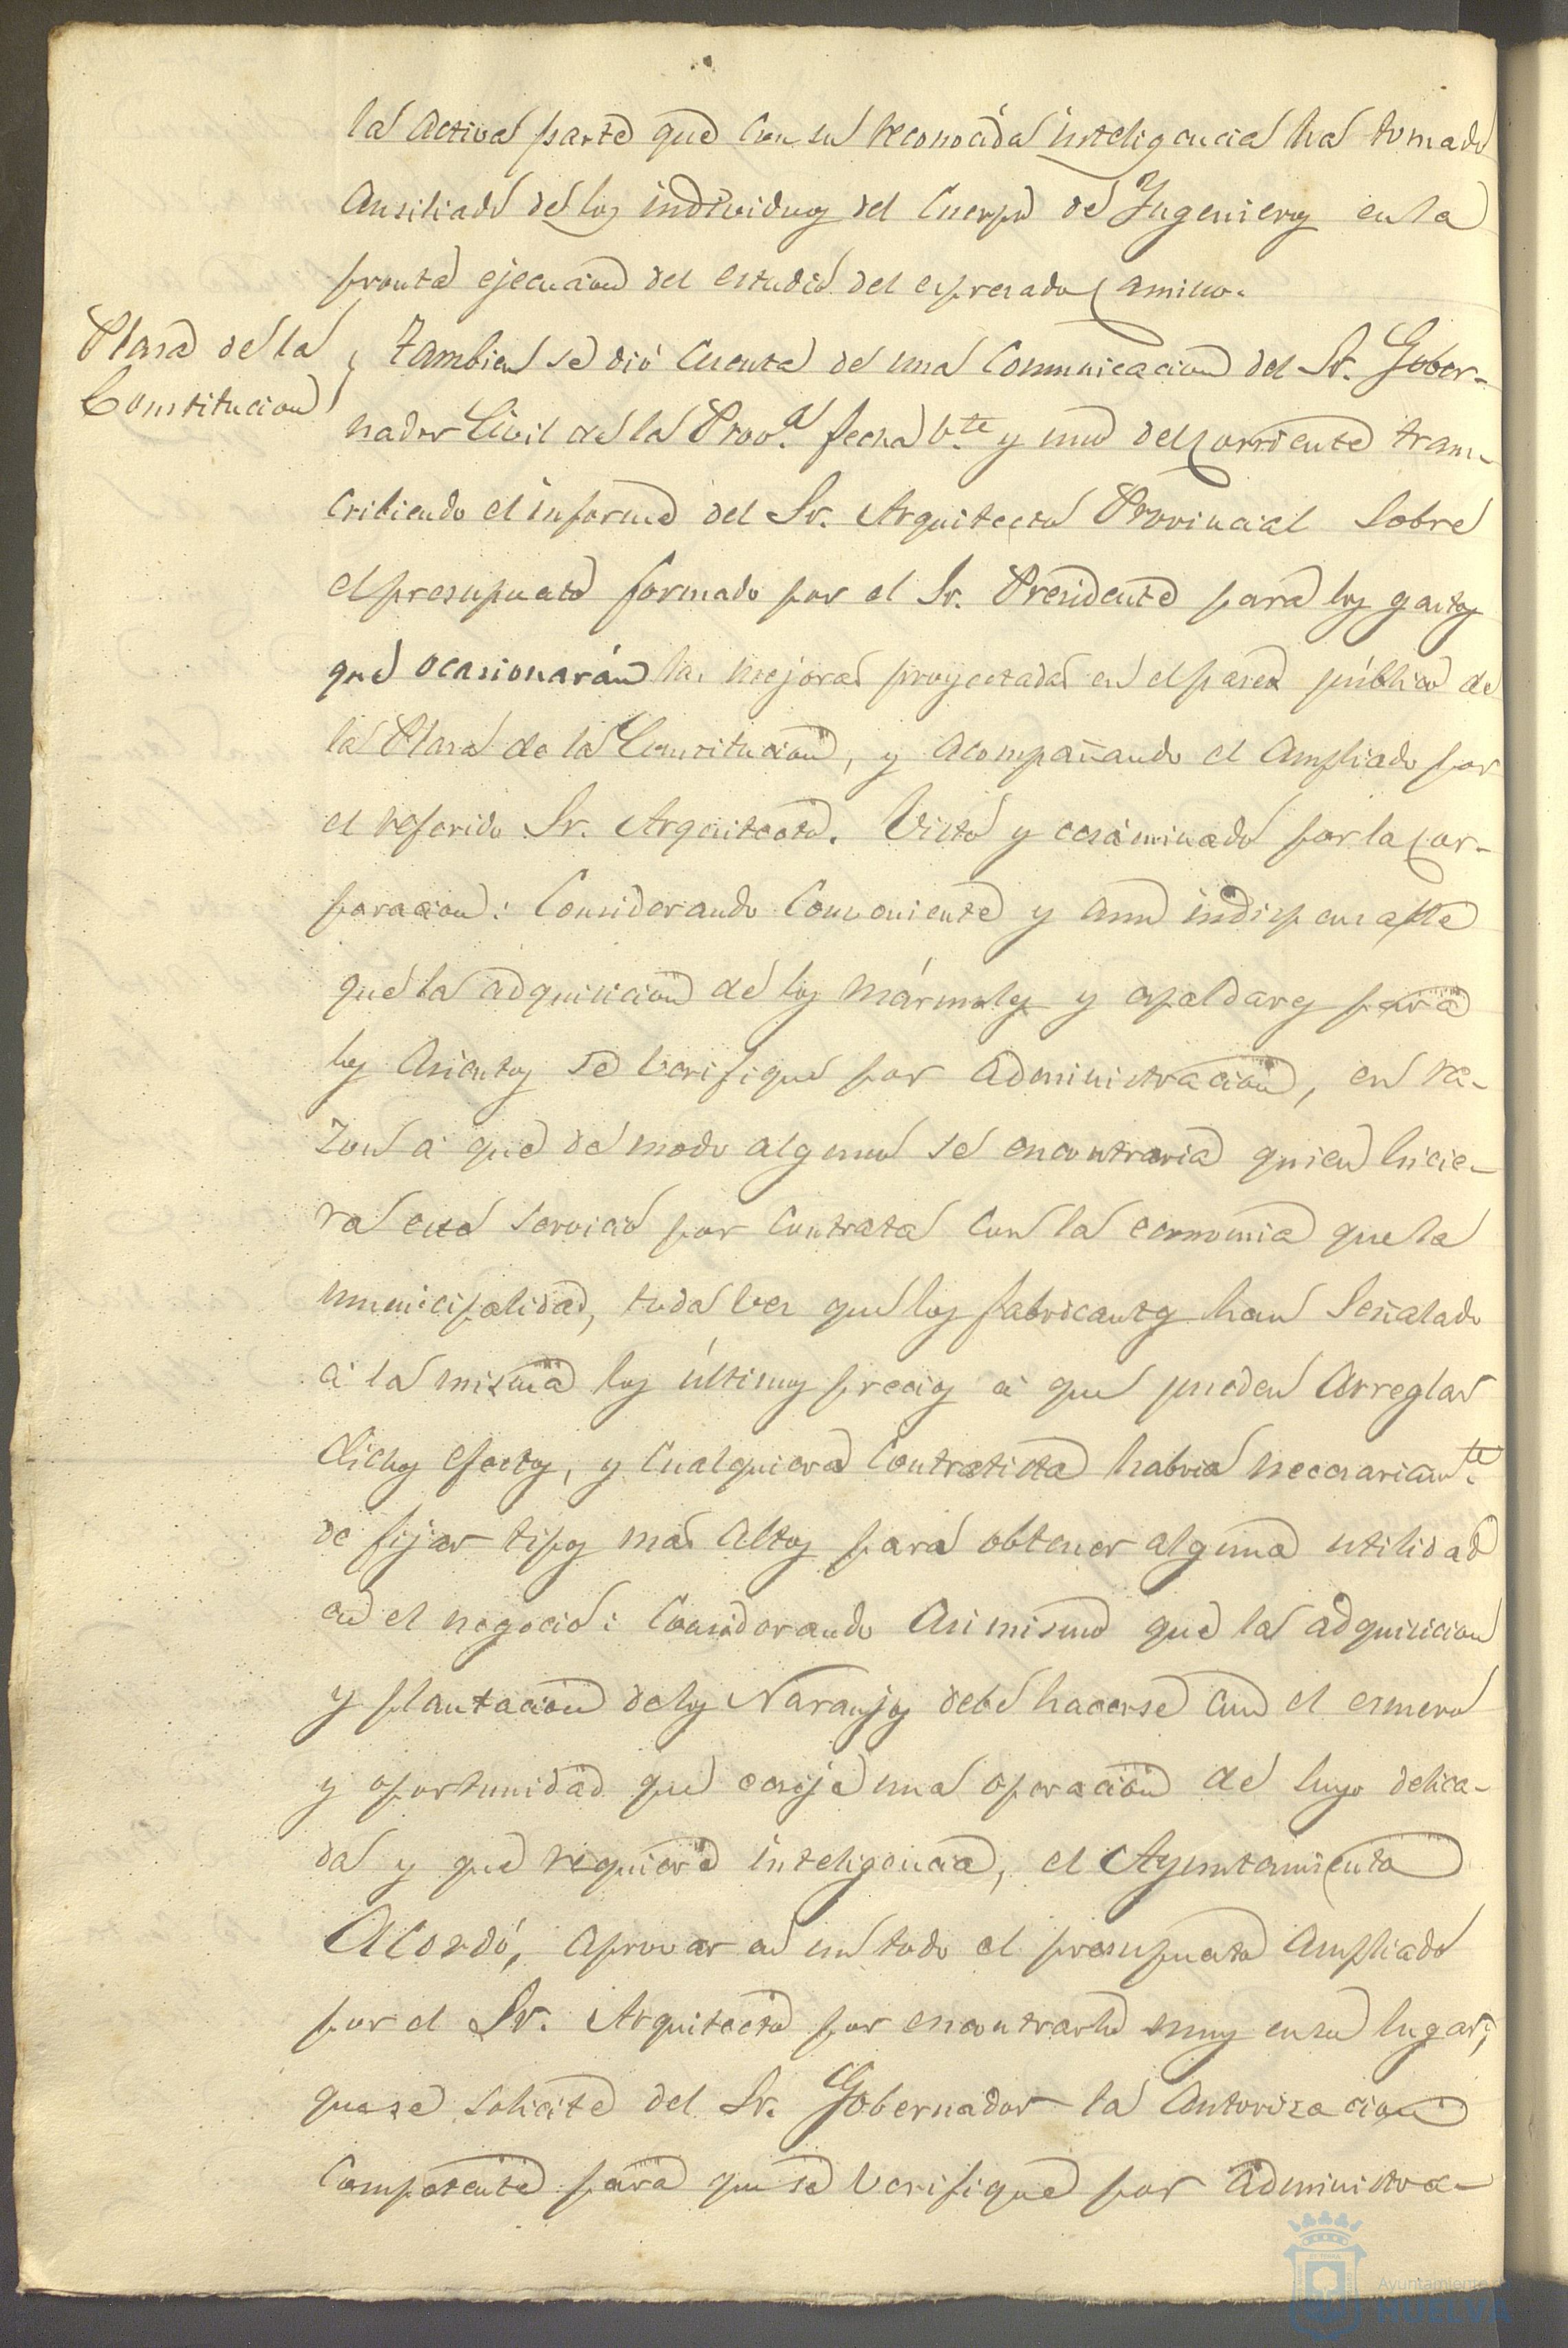 la activa parte que con su reconocida inteligencia ha tomado
ausiliado de los individuos del Cuerpo de Ingenieros en la
pronta ejecucion del estudio del espresado Camino.
Plasa de la
Constitucion
Tambien se dió cuenta de una comunicacion del Sr. Gober-
nador Civil de la Prov.ª fecha v.te y uno del corriente trans-
cribiendo el informe del Sr. Arquitecto Provincial sobre
el presupuesto formado por el Sr. Presidente para los gastos
que ocasionarán las mejoras proyectadas en el paseo público de
la Plasa de la Constitucion, y acompañando el ampliado por
el referido Sr. Arquitecto. Visto y ecsaminado por la Cor-
poracion: Considerando conveniente y aun indispensable
que la adquisicion de los mármoles y espaldares para
los asientos se verifique por administracion, en ra-
zon á que de modo alguno se encontraria quien hicie-
ra ese servicio por contrata con la economia que la
municipalidad, toda vez que los fabricantes han señalado
á la misma los últimos precios á que pueden arreglar
dichos efectos, y cualquiera contratista habria necesariam.te
de fijar tipos mas altos para obtener alguna utilidad
en el negocio: Considerando asimismo que la adquisicion
y plantacion de los Naranjos debe hacerse con el esmero
y oportunidad que ecsije una operacion de suyo delica-
da y que requiere inteligencia, el Ayuntamiento
Acordó, aprovar en un todo el presupuesto ampliado
por el Sr. Arquitecto por encontrarlo muy en su lugar;
que se solicite del Sr. Gobernador la autorizacion
competente para que se verifique por administra-
Ayuntamiento
HUELVA